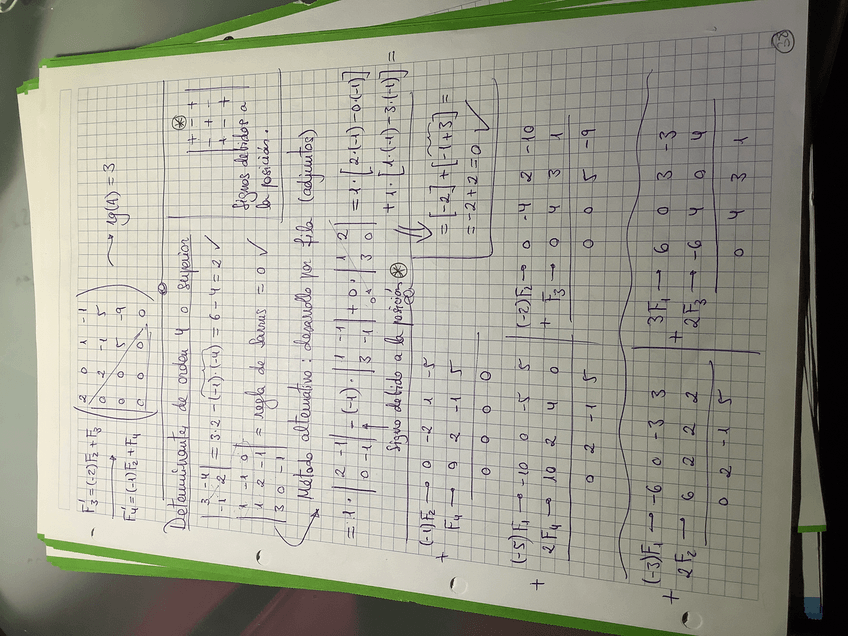 F₃' = (-2)F₂ + F₃
F₄' = (-1)F₂ + F₄
2 0 1 -1
0 2 -1 5
0 0 5 -9
0 0 0 0
→ rg(A) = 3
Determinante de orden 4 o superior
|3 -4|
|-1 2| = 3·2 - (-1)·(-4) = 6 - 4 = 2 ✓
|1 -1 0|
|1 2 -1|
|3 0 -1| = regla de Sarrus = 0 ✓
⊛
|+ - +|
|- + -|
|+ - +|
Signos debidos a
la posición.
Método alternativo: desarrollo por fila (adjuntos)
= 1·|2 -1|
|0 -1| - (-1)·|1 -1|
|3 -1| + 0·|1 2|
|3 0| = 1·[2·(-1) - 0·(-1)]
+ 1·[1·(-1) - 3·(-1)] =
Signo debido a la posición ⊛
= [-2] + [-1+3] =
= -2 + 2 = 0 ✓
(-1)F₂ → 0 -2 1 -5
+ F₄ → 0 2 -1 5
0 0 0 0
(-5)F₁ → -10 0 -5 5
+ 2F₄ → 10 2 4 0
0 2 -1 5
(-2)F₂ → 0 -4 2 -10
+ F₃ → 0 4 3 1
0 0 5 -9
(-3)F₁ → -6 0 -3 3
+ 2F₂ → 6 2 2 2
0 2 -1 5
3F₁ → 6 0 3 -3
+ 2F₃ → -6 4 0 4
0 4 3 1